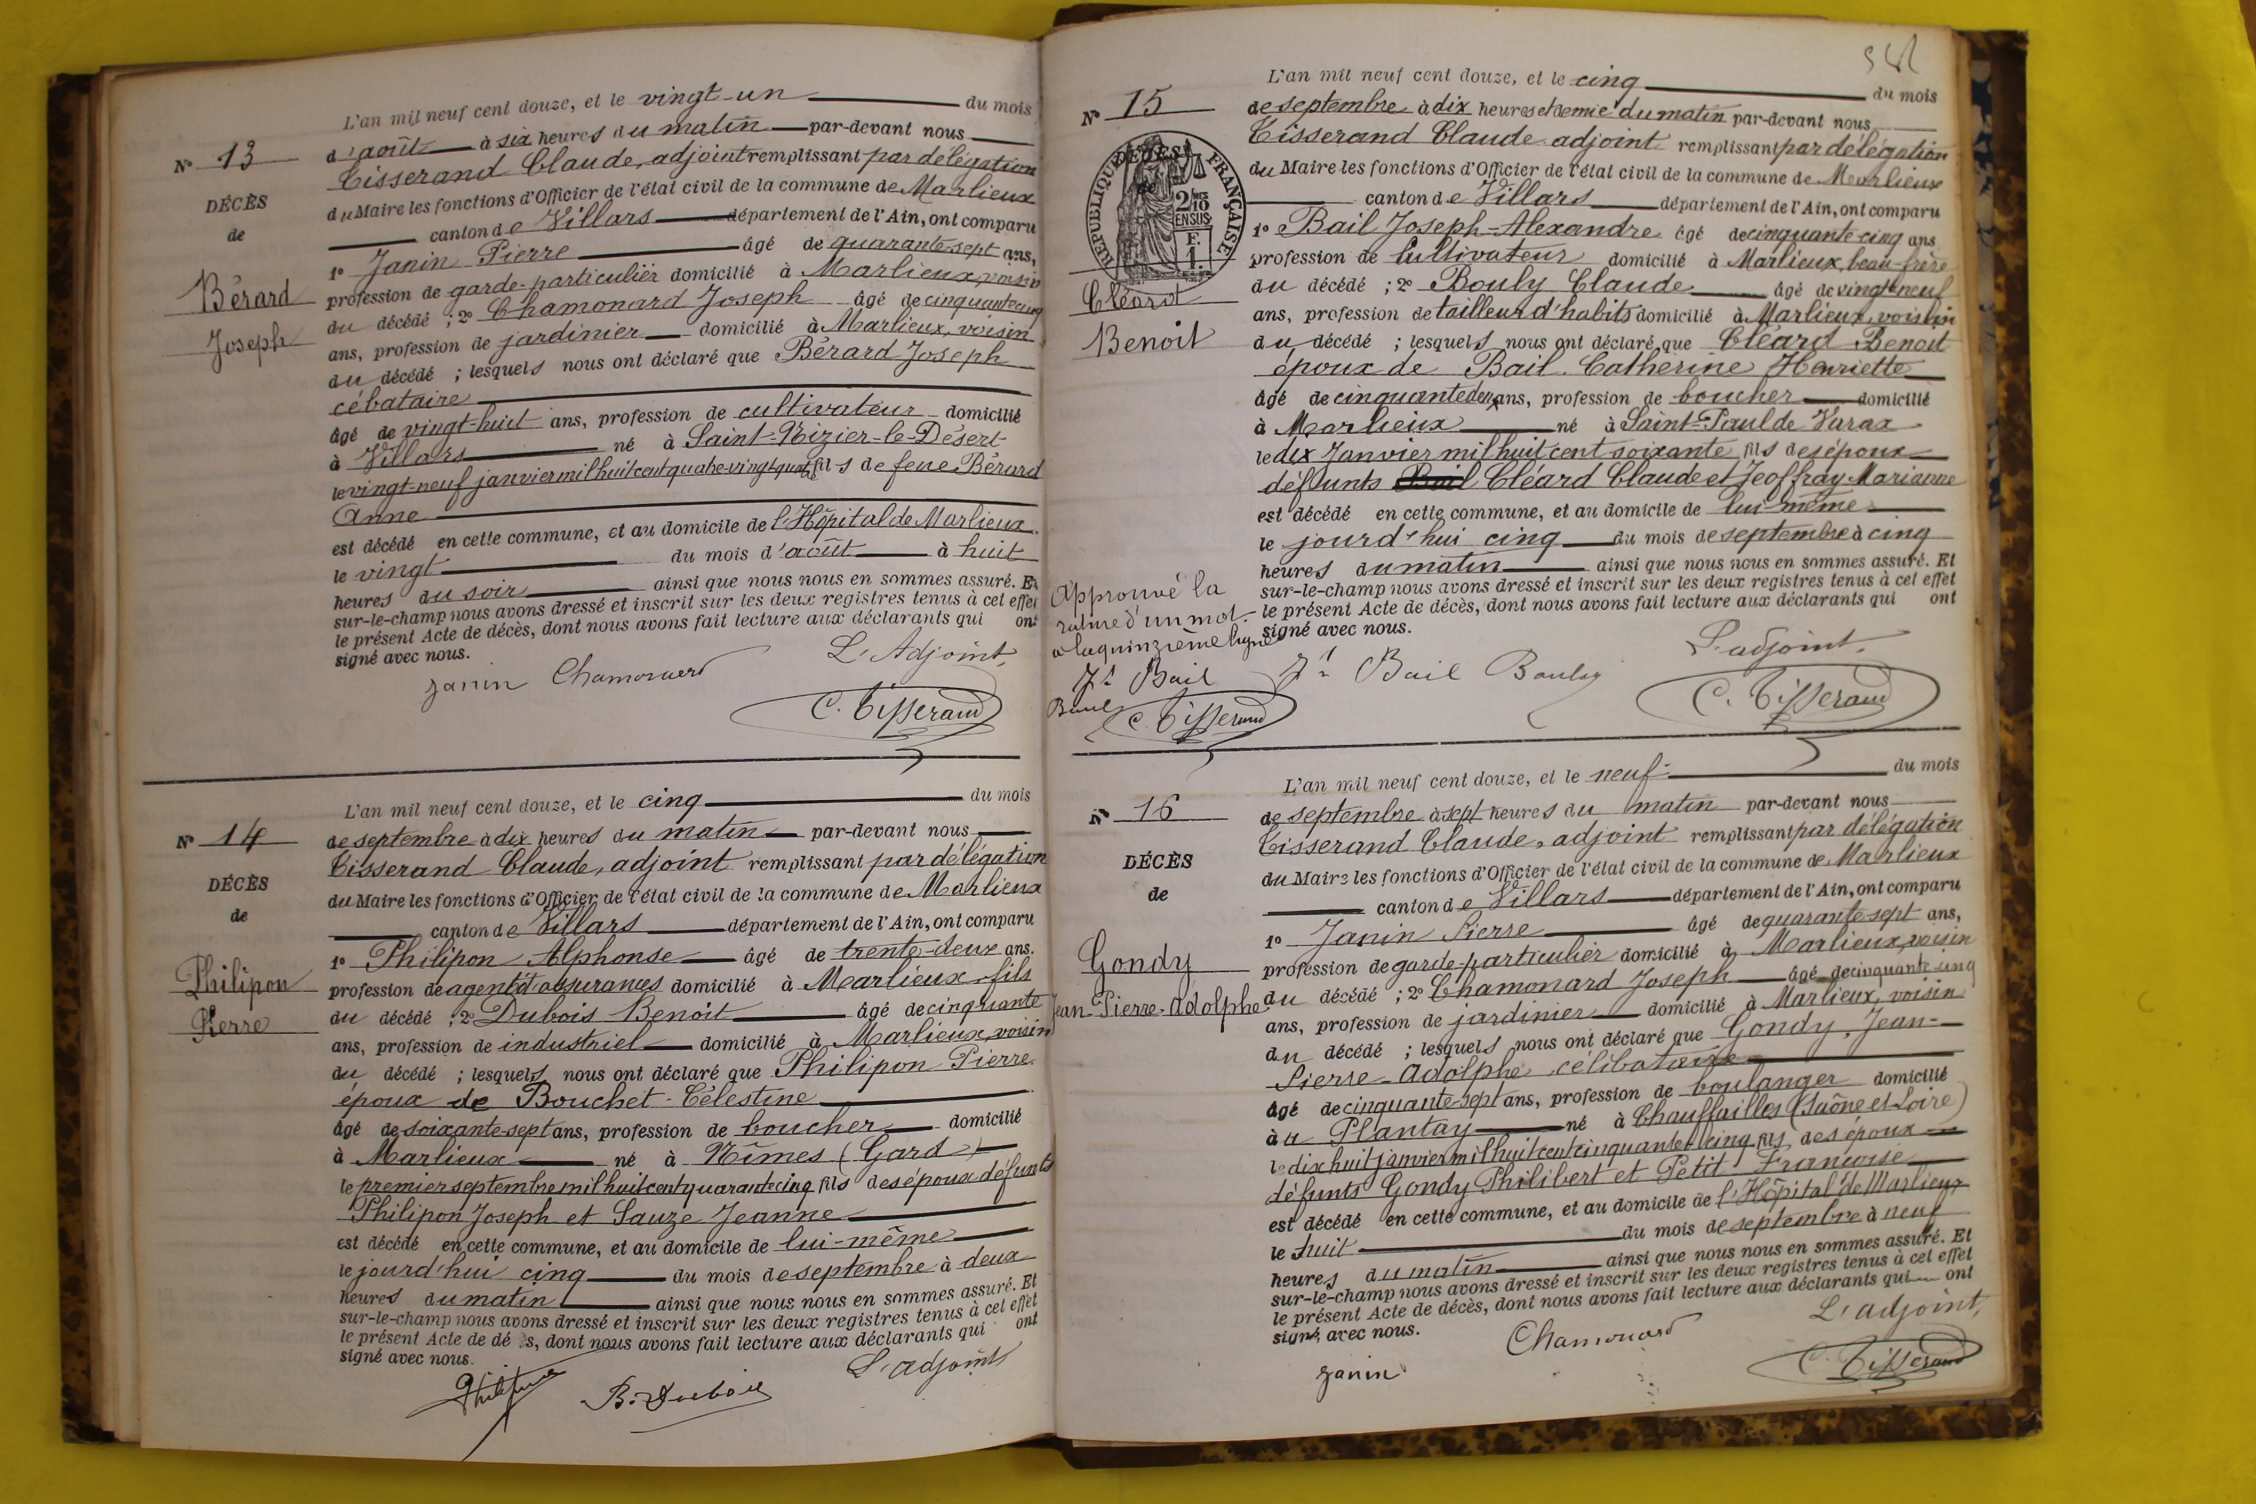 L'an mil neuf cent douze, et le vingt-un du mois
N° 13
d'août à six heures du matin par-devant nous
Tisserand Claude, adjoint remplissant par délégation
DÉCÈS
du Maire les fonctions d'Officier de l'état civil de la commune de Marlieux
de
canton de Villars département de l'Ain, ont comparu
1° Janin Pierre âgé de quarante-sept ans,
Bérard
profession de garde-particulier domicilié à Marlieux, voisin
du décédé ; 2° Chamonard Joseph âgé de cinquante cinq
Joseph
ans, profession de jardinier domicilié à Marlieux, voisin
du décédé ; lesquels nous ont déclaré que Bérard Joseph
cébataire
âgé de vingt-huit ans, profession de cultivateur domicilié
à Villars né à Saint-Nizier-le-Désert
le vingt-neuf janvier mil huit cent quatre-vingt-quatre fils de feue Bérard
Anne
est décédé en cette commune, et au domicile de l'Hôpital de Marlieux
le vingt du mois d'août à huit
heures du soir ainsi que nous nous en sommes assuré. Et
sur-le-champ nous avons dressé et inscrit sur les deux registres tenus à cet effet
le présent Acte de décès, dont nous avons fait lecture aux déclarants qui ont
signé avec nous.
L'Adjoint,
Janin Chamonard
C. Tisserand
L'an mil neuf cent douze, et le cinq du mois
N° 14
de septembre à dix heures du matin par-devant nous
Tisserand Claude, adjoint remplissant par délégation
DÉCÈS
du Maire les fonctions d'Officier de l'état civil de la commune de Marlieux
de
canton de Villars département de l'Ain, ont comparu
1° Philipon Alphonse âgé de trente-deux ans.
Philipon
profession de agent d'assurances domicilié à Marlieux fils
du décédé ; 2° Dubois Benoit âgé de cinquante
Pierre
ans, profession de industriel domicilié à Marlieux, voisin
du décédé ; lesquels nous ont déclaré que Philipon Pierre
époux de Bouchet Célestine
âgé de soixante-sept ans, profession de boucher domicilié
à Marlieux né à Nîmes (Gard)
le premier septembre mil huit cent quarante cinq fils des époux défunts
Philipon Joseph et Sauze Jeanne
est décédé en cette commune, et au domicile de lui-même
le jourd'hui cinq du mois de septembre à deux
heures du matin ainsi que nous nous en sommes assuré. Et
sur-le-champ nous avons dressé et inscrit sur les deux registres tenus à cet effet
le présent Acte de dé s, dont nous avons fait lecture aux déclarants qui ont
signé avec nous.
L'adjoint
B. Dubois
L'an mil neuf cent douze, et le cinq du mois
N° 15
de septembre à dix heures et demie du matin par-devant nous
Tisserand Claude adjoint remplissant par délégation
du Maire les fonctions d'Officier de l'état civil de la commune de Marlieux
RÉPUBLIQUE FRANÇAISE
DÉCÈS
de
2/10 EN SUS
F. 1.
canton de Villars département de l'Ain, ont comparu
1° Bail Joseph-Alexandre âgé de cinquante-cinq ans
profession de Cultivateur domicilié à Marlieux, beau-frère
Cléard
du décédé ; 2° Bouly Claude âgé de vingt-neuf
ans, profession de tailleur d'habits domicilié à Marlieux voisin
Benoit
du décédé ; lesquels nous ont déclaré que Cléard Benoit
époux de Bail Catherine Henriette
âgé de cinquante deux ans, profession de boucher domicilié
à Marlieux né à Saint-Paul de Varax
le dix Janvier mil huit cent soixante fils des époux
défunts Bail Cléard Claude et Jeoffray Marianne
est décédé en cette commune, et au domicile de lui-même
le jourd'hui cinq du mois de septembre à cinq
heures du matin ainsi que nous nous en sommes assuré. Et
sur-le-champ nous avons dressé et inscrit sur les deux registres tenus à cet effet
le présent Acte de décès, dont nous avons fait lecture aux déclarants qui ont
signé avec nous.
Approuvé la
rature d'un mot
à la quinzième ligne
Jh Bail
C. Tisserand
L'adjoint.
Jh Bail Bouly
C. Tisserand
L'an mil neuf cent douze, et le neuf du mois
N° 16
de septembre à sept heures du matin par-devant nous
Tisserand Claude, adjoint remplissant par délégation
DÉCÈS
du Maire les fonctions d'Officier de l'état civil de la commune de Marlieux
de
canton de Villars département de l'Ain, ont comparu
1° Janin Pierre âgé de quarante-sept ans,
Gondy
profession de garde-particulier domicilié à Marlieux, voisin
Jean-Pierre-Adolphe
du décédé ; 2° Chamonard Joseph âgé de cinquante cinq
ans, profession de jardinier domicilié à Marlieux, voisin
du décédé ; lesquels nous ont déclaré que Gondy, Jean-
Pierre-Adolphe célibataire
âgé de cinquante-sept ans, profession de boulanger domicilié
à u Plantay né à Chauffailles (Saône et Loire)
le dix huit janvier mil huit cent cinquante et cinq fils des époux
défunts Gondy Philibert et Petit Françoise
est décédé en cette commune, et au domicile de l'Hôpital de Marlieux
le huit du mois de septembre à neuf
heures du matin ainsi que nous nous en sommes assuré. Et
sur-le-champ nous avons dressé et inscrit sur les deux registres tenus à cet effet
le présent Acte de décès, dont nous avons fait lecture aux déclarants qui ont
signé avec nous.
L'adjoint,
Janin Chamonard
C. Tisserand